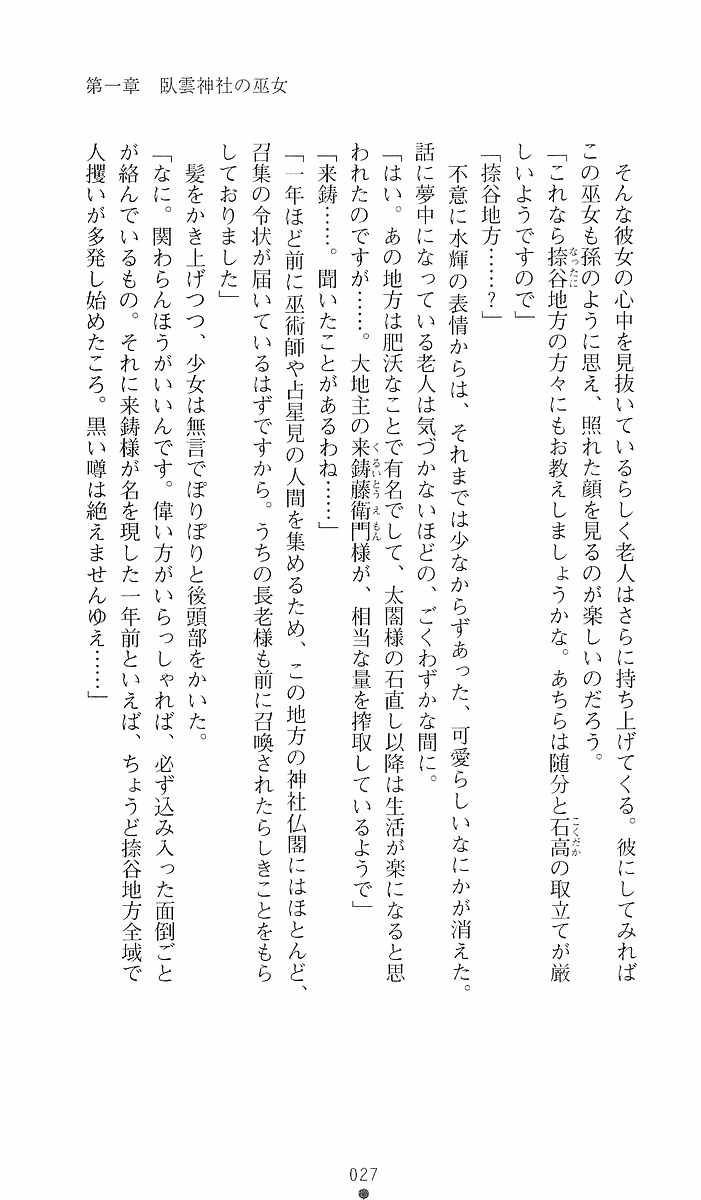 第一章　臥雲神社の巫女
　そんな彼女の心中を見抜いているらしく老人はさらに持ち上げてくる。彼にしてみれば
この巫女も孫のように思え、照れた顔を見るのが楽しいのだろう。
「これなら捺谷地方の方々にもお教えしましょうかな。あちらは随分と石高の取立てが厳
しいようですので」
「捺谷地方……？」
　不意に水輝の表情からは、それまでは少なからずあった、可愛らしいなにかが消えた。
話に夢中になっている老人は気づかないほどの、ごくわずかな間に。
「はい。あの地方は肥沃なことで有名でして、太閤様の石直し以降は生活が楽になると思
われたのですが……。大地主の来鋳藤衛門様が、相当な量を搾取しているようで」
「来鋳……。聞いたことがあるわね……」
「一年ほど前に巫術師や占星見の人間を集めるため、この地方の神社仏閣にはほとんど、
召集の令状が届いているはずですから。うちの長老様も前に召喚されたらしきことをもら
しておりました」
　髪をかき上げつつ、少女は無言でぽりぽりと後頭部をかいた。
「なに。関わらんほうがいいんです。偉い方がいらっしゃれば、必ず込み入った面倒ごと
が絡んでいるもの。それに来鋳様が名を現した一年前といえば、ちょうど捺谷地方全域で
人攫いが多発し始めたころ。黒い噂は絶えませんゆえ……」
027